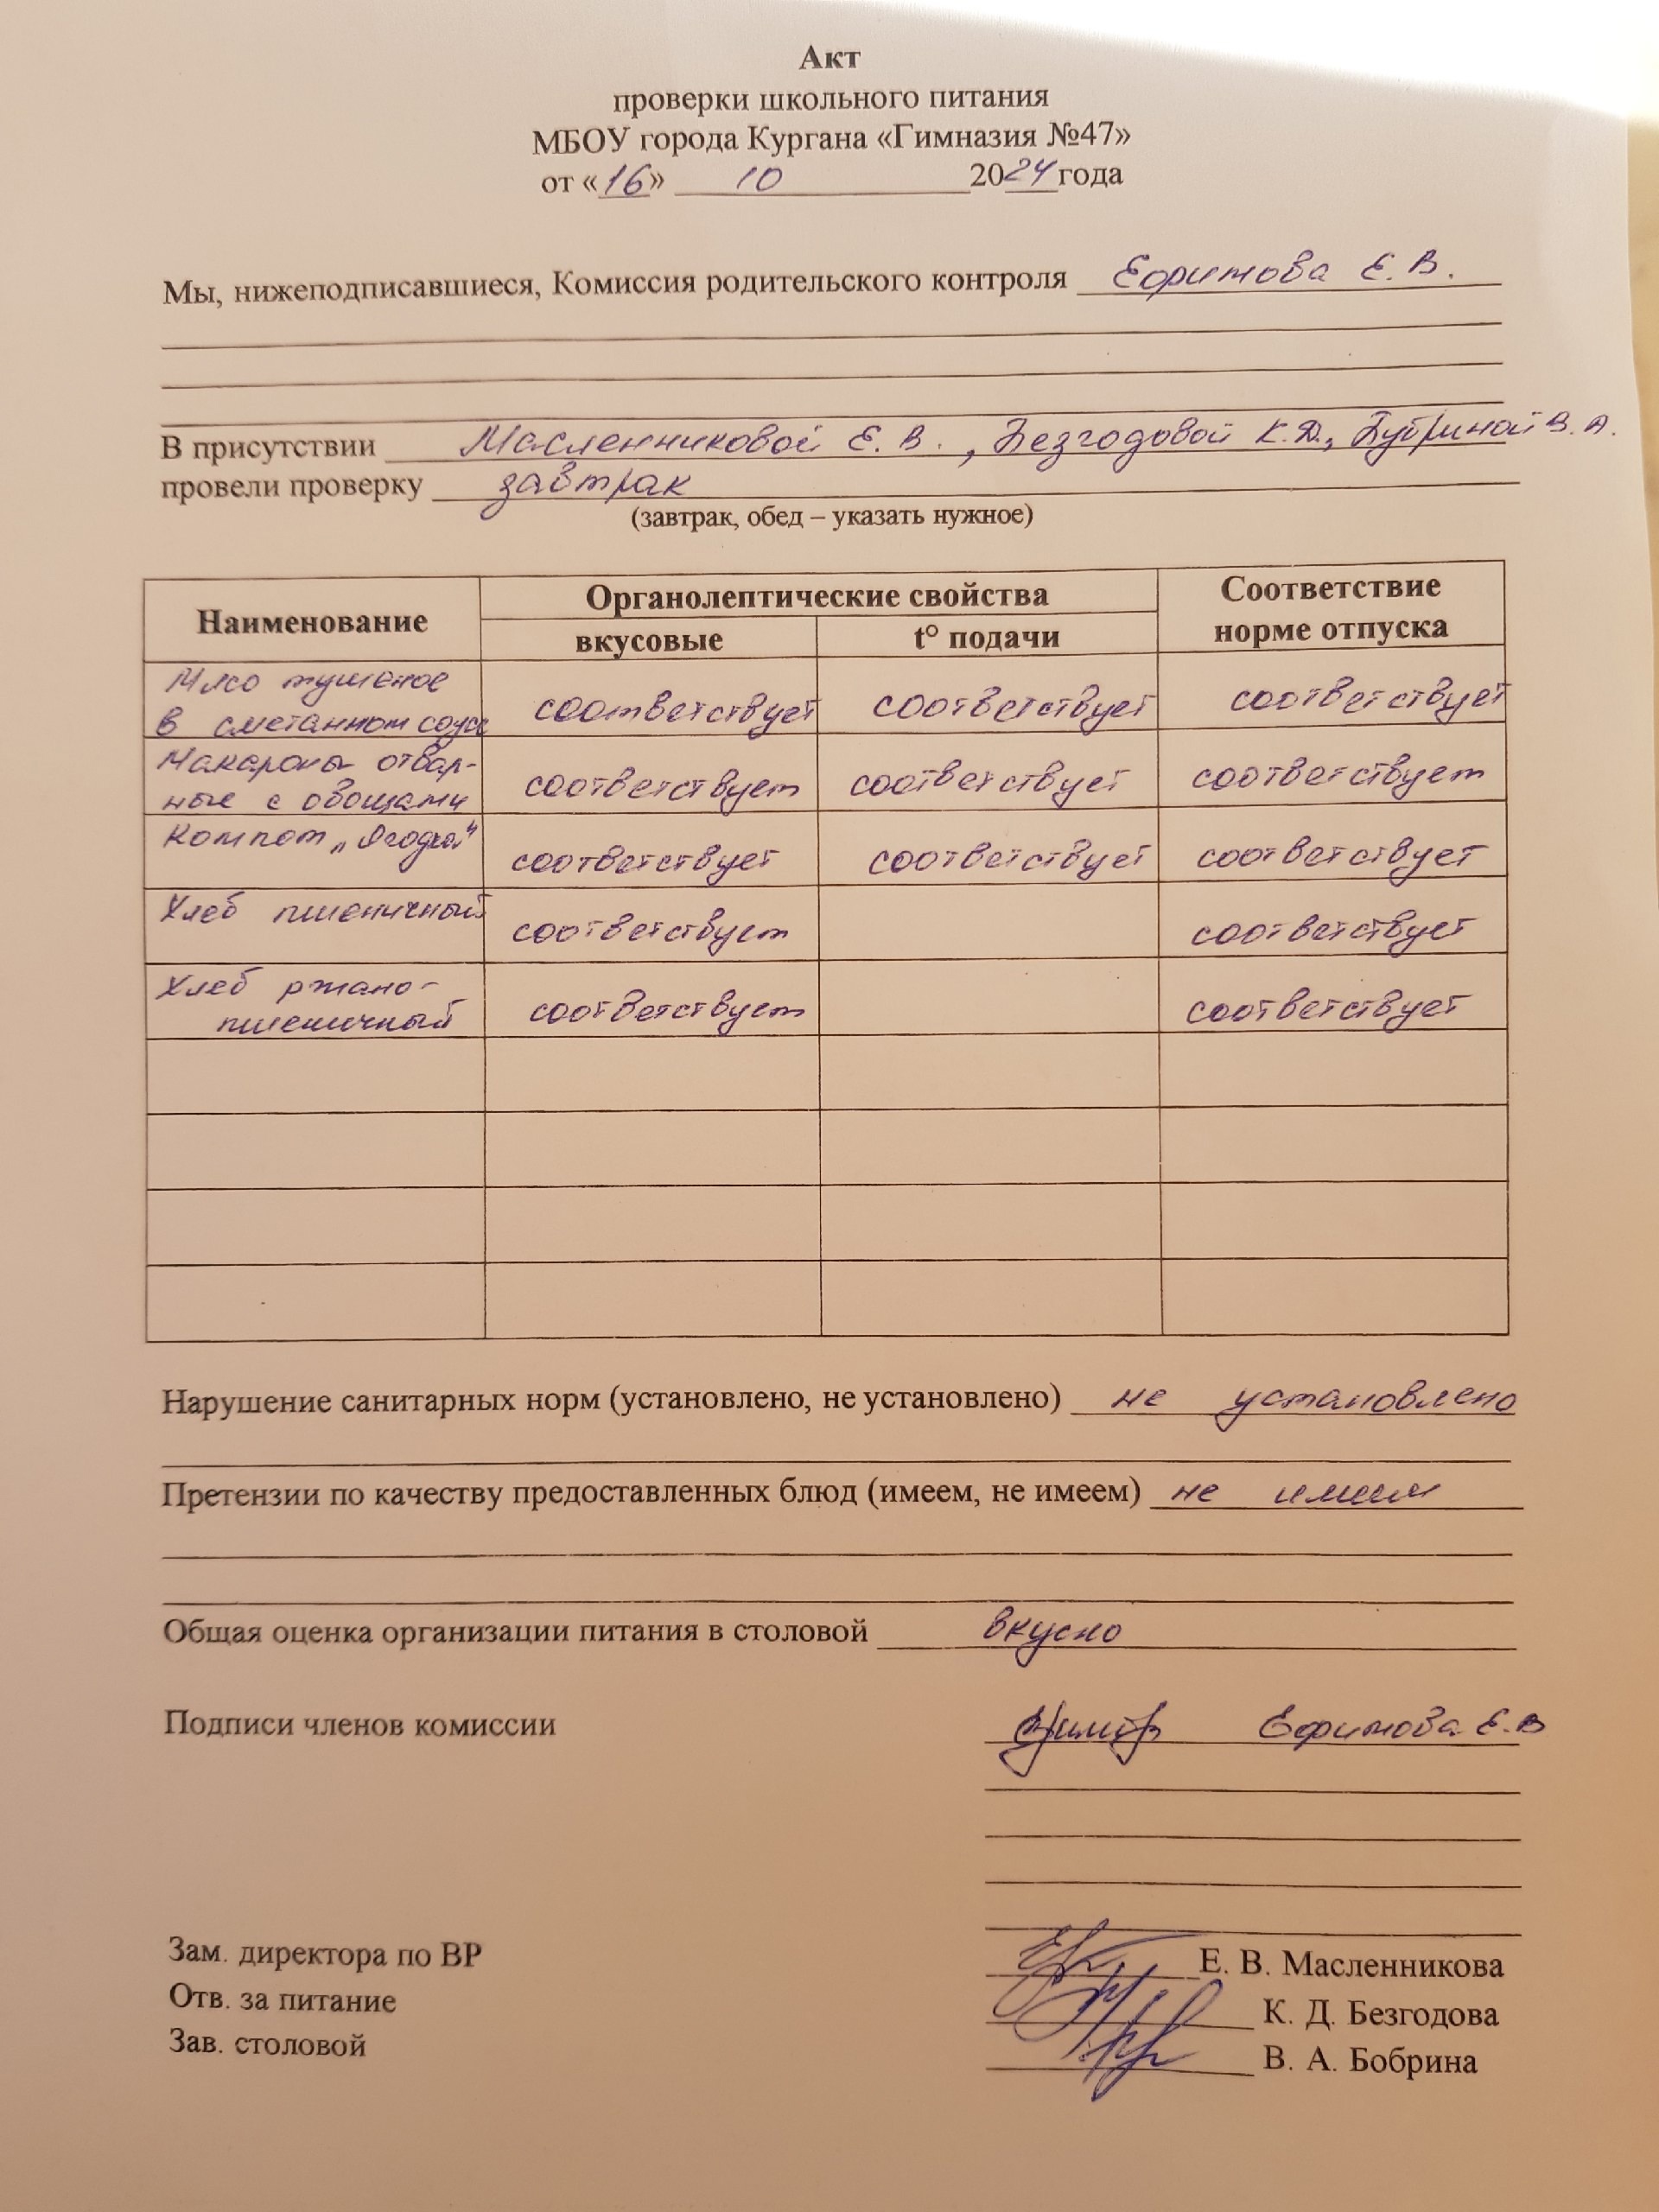 Акт
проверки школьного питания
МБОУ города Кургана «Гимназия №47»
от «16» 10 2024 года
Мы, нижеподписавшиеся, Комиссия родительского контроля Ефимова Е. В.
В присутствии Масленниковой Е. В., Безгодовой К.Д., В. А.
провели проверку завтрак
(завтрак, обед – указать нужное)
Наименование Органолептические свойства Соответствие норме отпуска
вкусовые t° подачи
Мясо тушеное
в сметанном соусе соответствует соответствует соответствует
Макароны отвар-
ные с овощами соответствует соответствует соответствует
Компот „Ягодка“ соответствует соответствует соответствует
Хлеб пшеничный соответствует соответствует
Хлеб ржано-
пшеничный соответствует соответствует
Нарушение санитарных норм (установлено, не установлено) не установлено
Претензии по качеству предоставленных блюд (имеем, не имеем) не имеем
Общая оценка организации питания в столовой вкусно
Подписи членов комиссии Ефимова Е. В
Зам. директора по ВР Е. В. Масленникова
Отв. за питание К. Д. Безгодова
Зав. столовой В. А. Бобрина